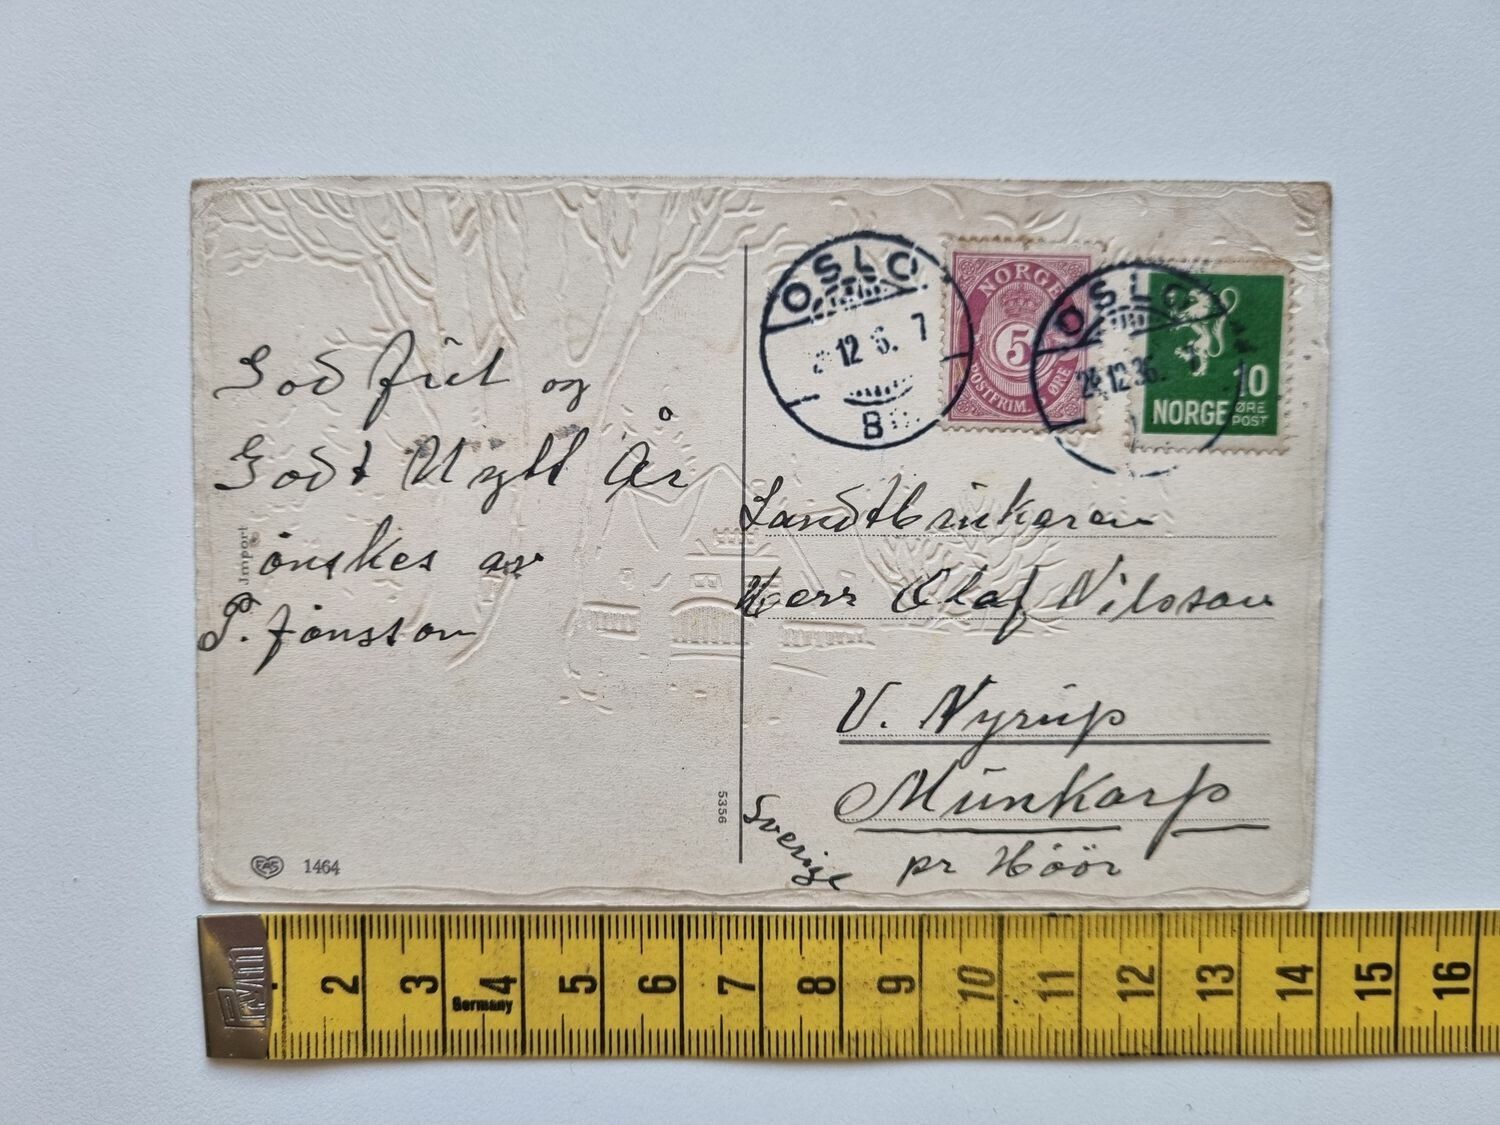 God Jul og
Godt Nytt År
önskes av
P. Jönsson
Import
EAS 1464
5356
OSLO
12 6. 7
B
NORGE
5
POSTFRIM. ØRE
OSLO
24.12.36.
10
NORGE ØRE POST
Landtbrukaren
Herr Olaf Nilsson
V. Nyrup
Munkarp
pr Höör
Sverige
PYM
2 3 4 5 6 7 8 9 10 11 12 13 14 15 16
Germany